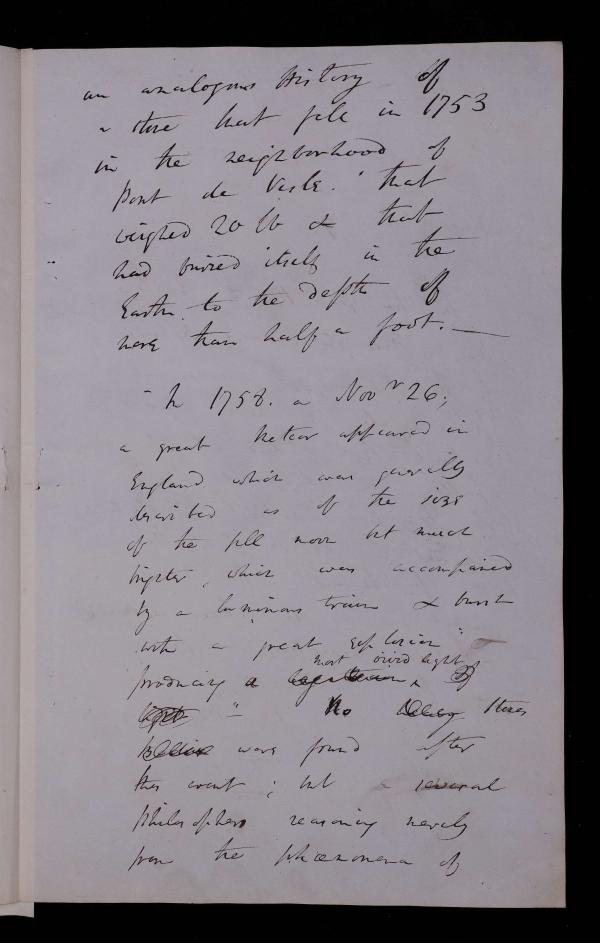 an analogous History of
a stone that fell in 1753
in the neighborhood of
Pont de Vesle. that
weighed 20 lb & that
had buried itself in the
Earth to the depth of
more than half a foot. —
In 1758. on Novr 26;
a great Meteor appeared in
England which was generally
described as of the size
of the full moon but much
brighter, which was accompanied
by a luminous train & burst
with a "great explosion"
producing a most vivid light
" No stones
were found after
this event; but several
Philosophers reasoning merely
from the phænomena of